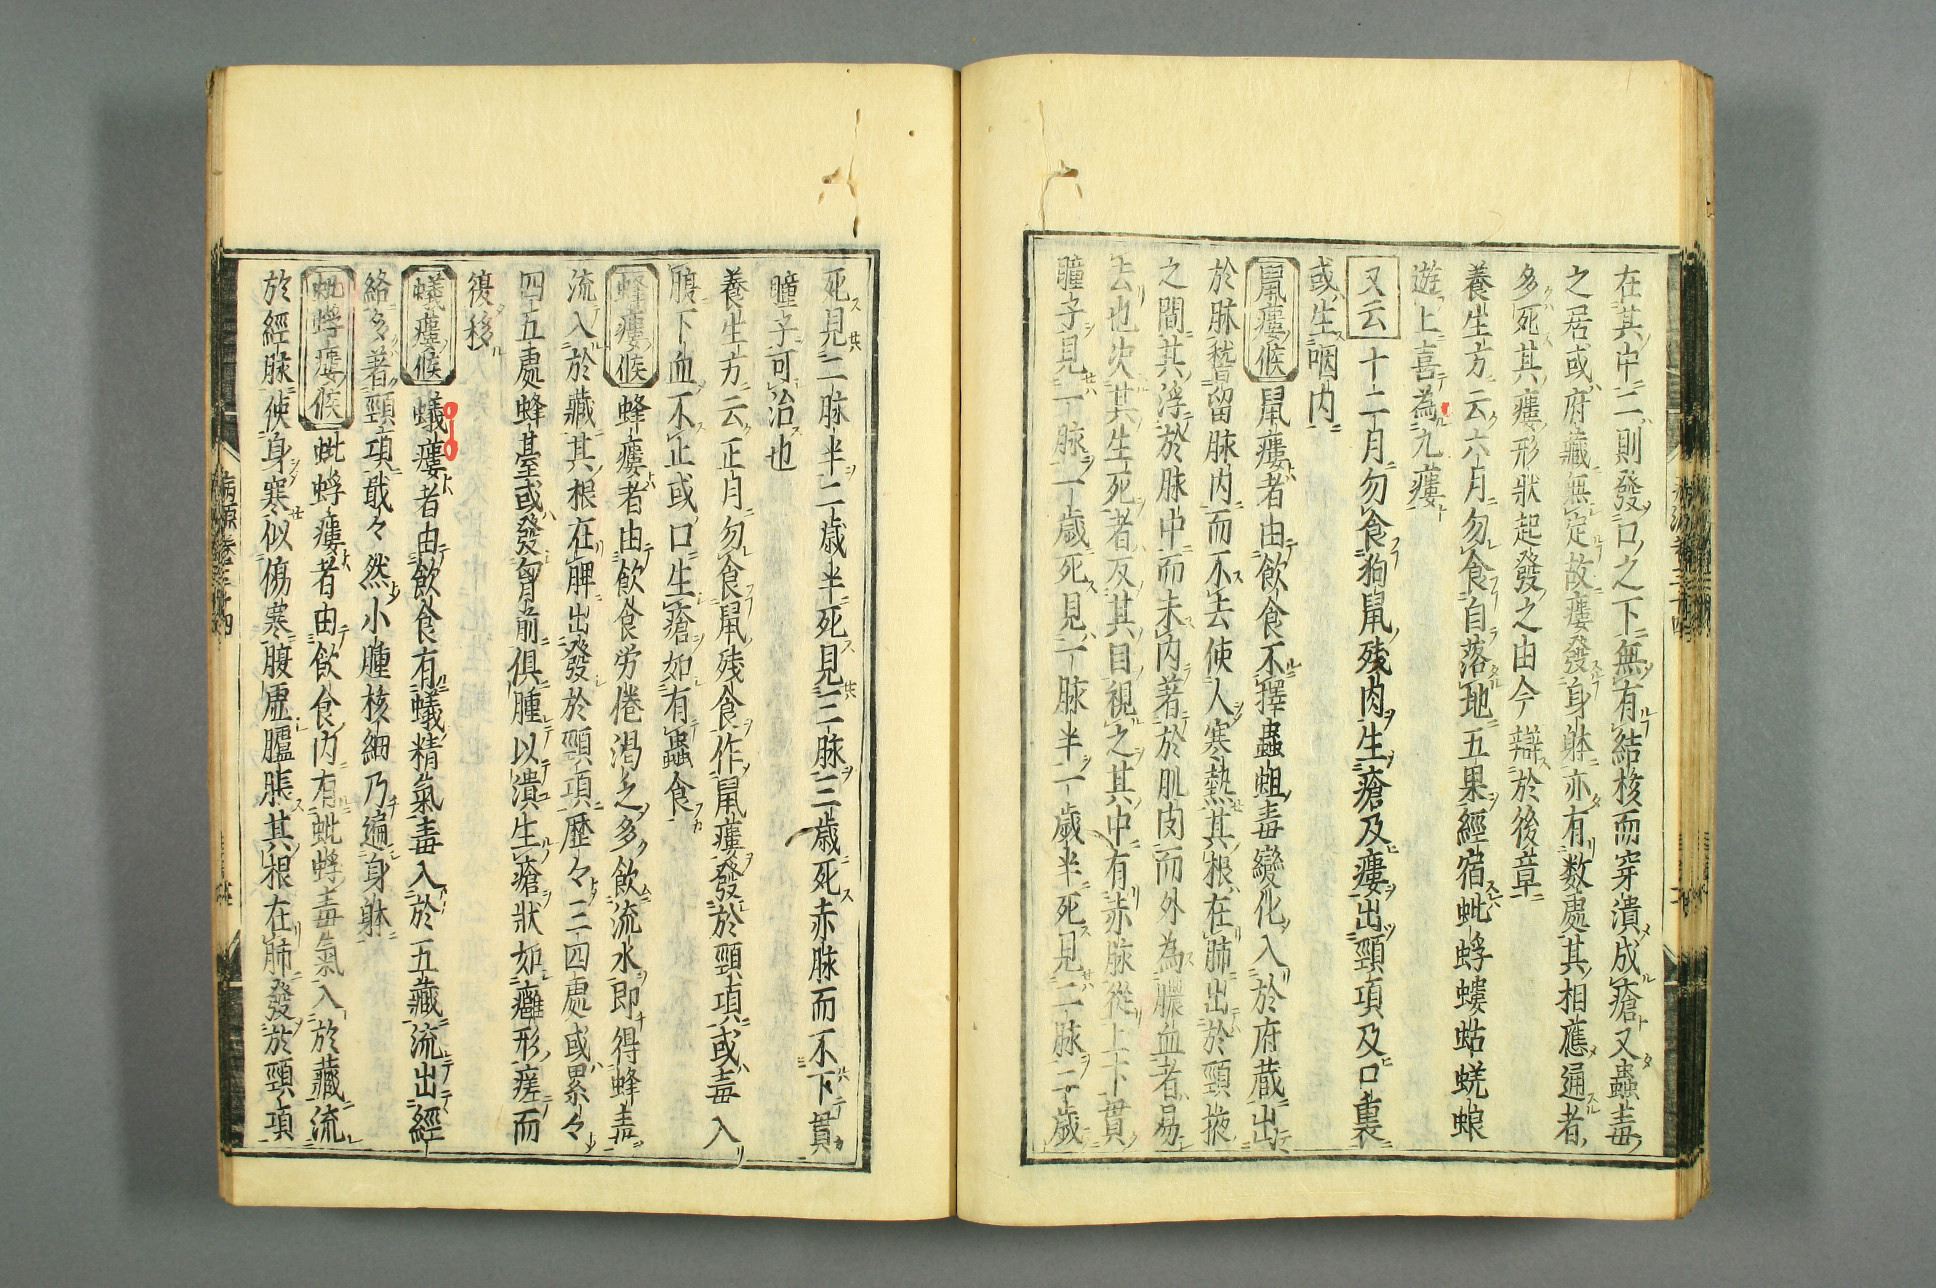 在其中二則發口之下無有結核而穿潰成瘡又蟲毒
之居或府藏無定故瘻發身躰亦有数處其相應通者
多死其瘻形狀起發之由今辯於後章
養生方云六月勿食自落地五果經宿蚍蜉螻蛄蜣蜋
遊上喜為九瘻
又云十二月勿食狗鼠残肉生瘡及瘻出頸項及口裏
或生咽内
鼠瘻候鼠瘻者由飲食不擇蟲蛆毒變化入於府蔵出
於脉稽留脉内而不去使人寒熱其根在肺出於頸掖
之間其浮於脉中而未内著於肌肉而外為膿血者易
去也决其生死者反其目視之其中有赤脉從上下貫
瞳子見一脉一歲死見一脉半一歲半死見二脉二歲
死見二脉半二歳半死見三脉三歳死赤脉而不下貫
瞳子可治也
養生方云正月勿食鼠残食作鼠瘻發於頸項或毒入
腹下血不止或口生瘡如有蟲食
蜂瘻候蜂瘻者由飲食労倦渇乏多飲流水即得蜂毒
流入於藏其根在脾出發於頸項歴々三四處或累々
四五處蜂臺或發胷前俱腫以潰生瘡狀如癰形瘥而
復移
蟻瘻候蟻瘻者由飲食有蟻精氣毒入於五藏流出經
絡多著頸項戢々然小腫核細乃遍身躰
蚍蜉瘻候蚍蜉瘻者由飲食内有蚍蜉毒氣入於藏流
於經脉使身寒似傷寒腹虛臚脹其根在肺發於頸項
病源卷三十四